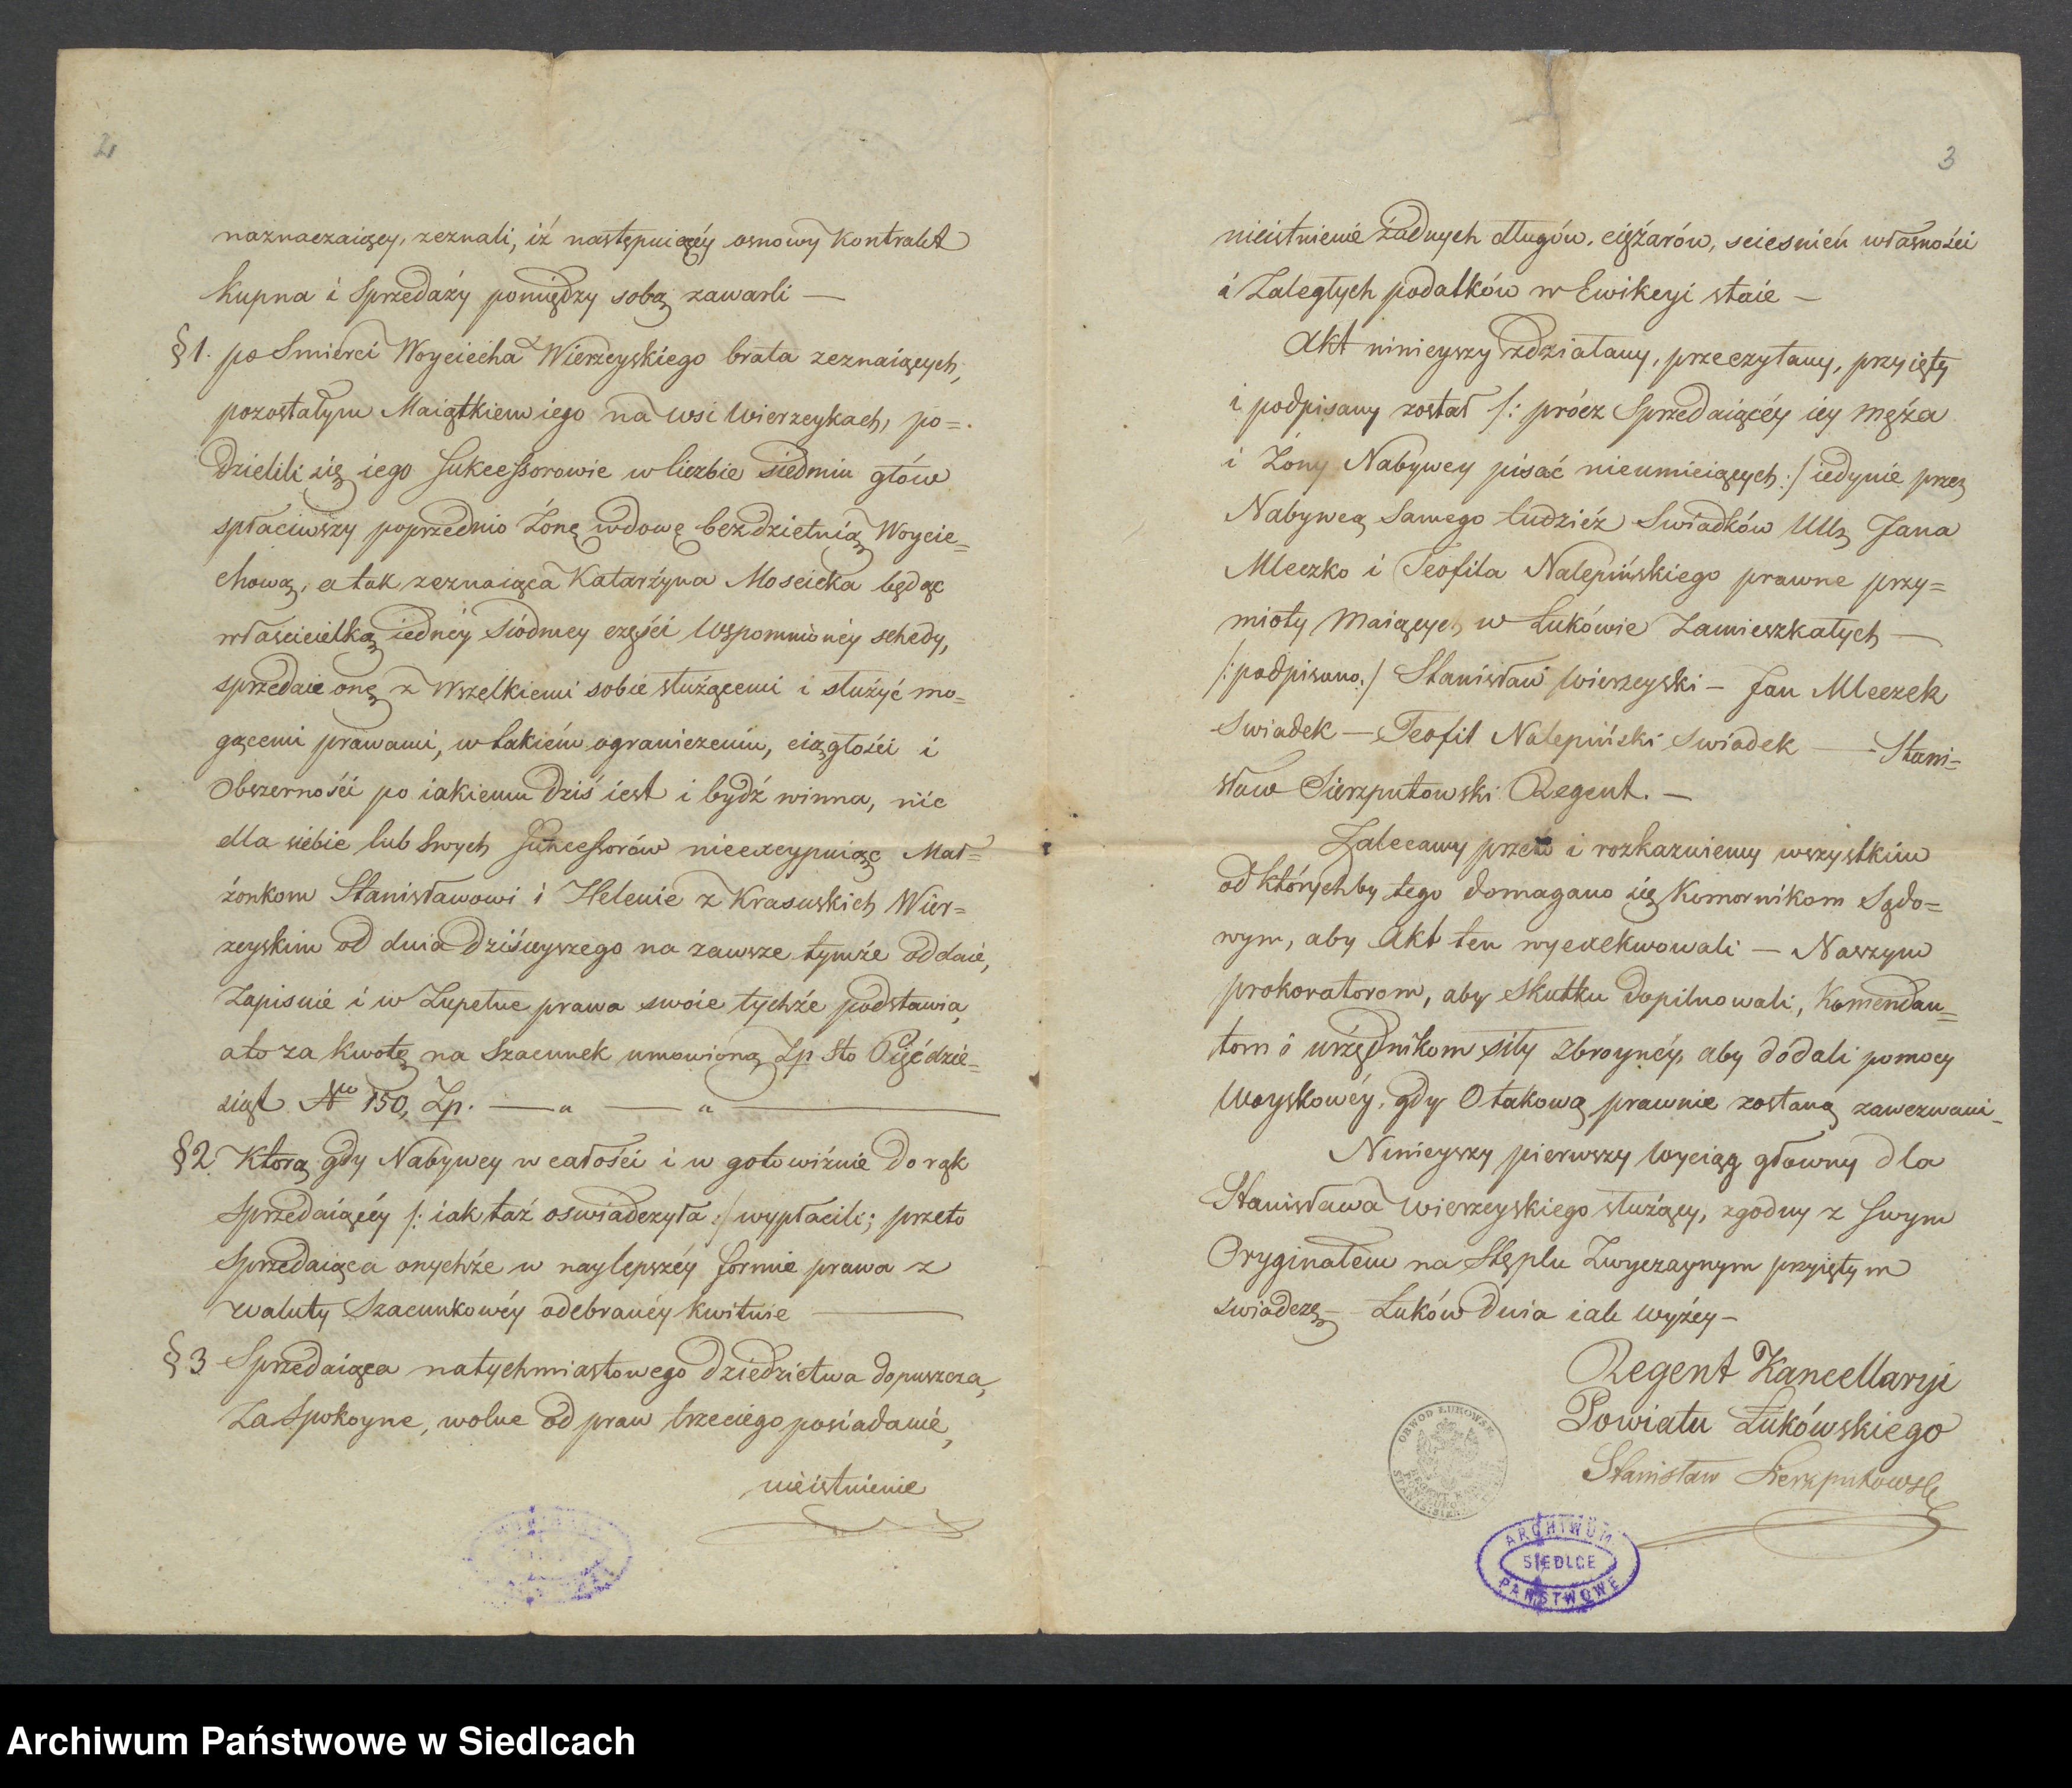 2
naznaczaiący, zeznali, iż następuiącéy osnowy Kontrakt
Kupna i Sprzedaży pomiędzy sobą zawarli —
§ 1. po Smierci Woyciecha Wierzeyskiego brata zeznaiących,
pozostałym Maiątkiem iego na wsi Wierzeykach, po=
dzielili się iego Sukcessorowie w liczbie siedmiu głów
spłaciwszy poprzednio Żonę wdowę bezdzietnią Woycie=
chową, a tak zeznaiąca Katarżyna Moscicka będąc
właścicielką iednéy Siódmey części Wspomnionéy schedy,
sprzedaie onę z Wszelkiemi sobie służącemi i służyć mo=
gącemi prawami, w takiém ograniczeniu, ciągłości i
Obszerności po iakiemu Dziś iest i bydź winna, nic
dla siebie lub Swych Sukcessorów nieexcypuiąc Mał=
żonkom Stanisławowi i Helenie z Krasuskich Wier=
zeyskim od dnia Dzisieyszego na zawsze tymże oddaie,
Zapisuie i w Zupełne prawa swoie tychże podstawia,
a to za kwotę na Szacunek umowioną Zp Sto Pięćdzie=
siąt No 150, Zp. — „ — „ —
§ 2. Którą gdy Nabywcy w całości i w gotowiźnie Do rąk
Sprzedaiącéy /: iak taż oswiadczyła :/ wypłacili; przeto
Sprzedaiąca onychże w naylepszéy formie prawa z
waluty Szacunkowéy odebranéy kwituie —
§ 3 Sprzedaiąca natychmiastowego Dziedzictwa dopuszcza,
Za Spokoyne, wolne od praw trzeciego posiadanie,
nieistnienie
3
nieistnienie żadnych długów, ciężarów, sciesnień własności
i Zaległych podatków w Ewikcyi staie —
Akt ninieyszy zdziałany, przeczytany, przyięty
i podpisany został /: prócz Sprzedaiącéy iey męża
i Żony Nabywcy pisać nieumieiących :/ iedynie przez
Nabywcą Samego tudzież Swiadków Jana
Mleczko i Teofila Nalepińskiego prawne przy=
mioty Maiących w Łukówie Zamieszkałych —
/: podpisano :/ Stanisław Wierzeyski — Jan Mleczek
Swiadek — Teofil Nalepiński Swiadek — Stani=
sław Sierzputowski Regent. —
Zalecamy przeto i rozkazuiemy wszystkim
od którychby tego domagano się Komornikom Sądo=
wym, aby Akt ten wyexekwowali — Naszym
prokoratorom, aby Skutku dopilnowali, Komendan=
tom i urzędnikom siły Zbroynéy, aby dodali pomocy
Woyskowéy, gdy O takową prawnie zostaną zawezwani —
Ninieyszy pierwszy Wyciąg główny dla
Stanisława Wierzeyskiego służący, zgodny z Swym
Oryginałem na Stęplu Zwyczaynym przyiętym
swiadczę — Łuków Dnia iak wyżey —
Regent Kancellaryi
Powiatu Łukówskiego
Stanisław Sierzputowski
OBWÓD ŁUKOWSK.
ARCHIWUM
SIEDLCE
PAŃSTWOWE
Archiwum Państwowe w Siedlcach